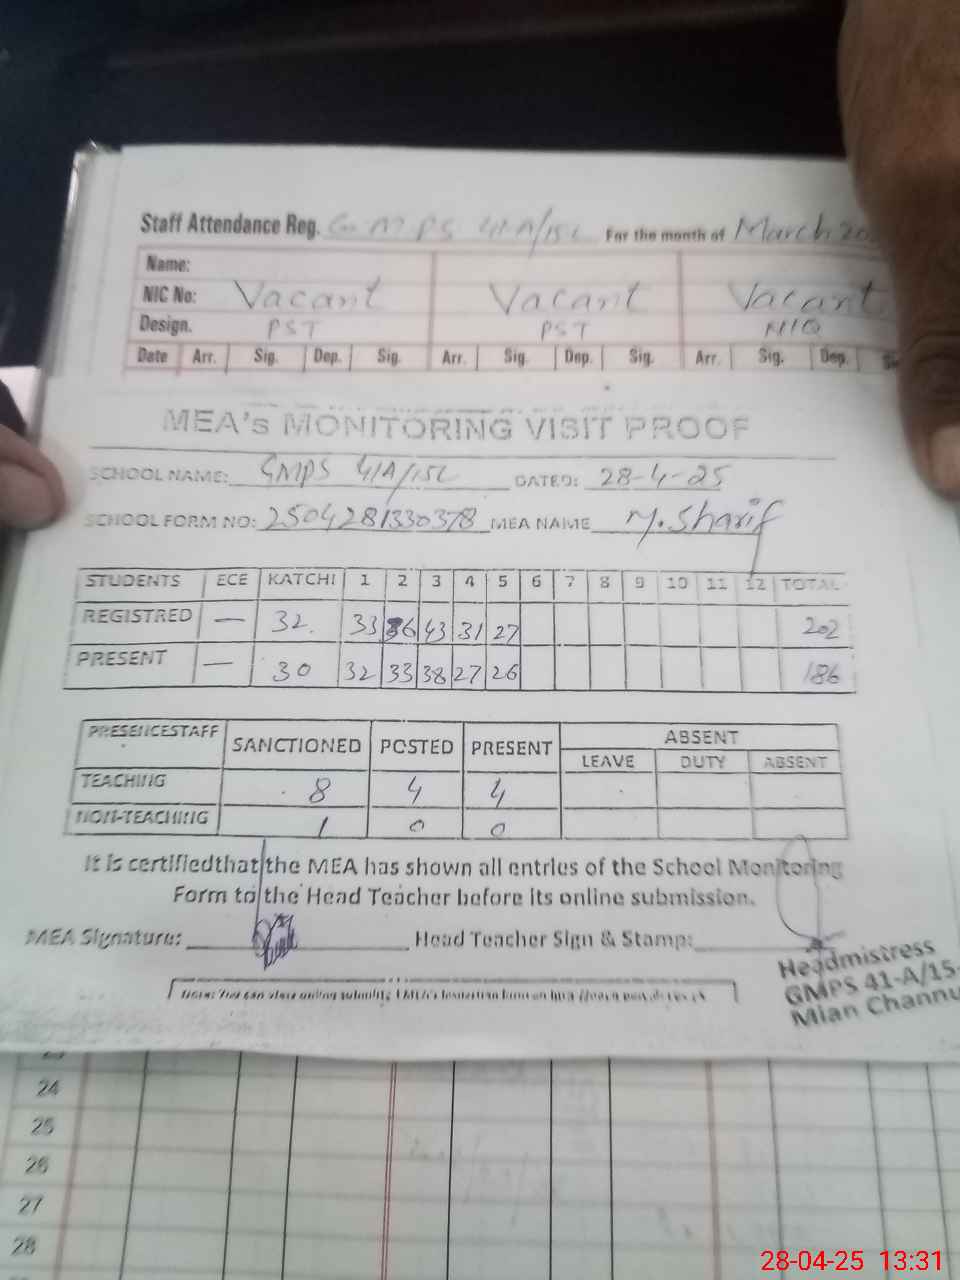 Staff Attendance Reg. G M P S 41-A/15L For the month of March 20
Name:
NIC No: Vacant Vacant Vacant
Design. PST PST N/Q
Date Arr. Sig. Dep. Sig. Arr. Sig. Dep. Sig. Arr. Sig. Dep.
MEA's MONITORING VISIT PROOF
SCHOOL NAME: GMPS 41A/15L DATED: 28-4-25
SCHOOL FORM NO: 2504281330378 MEA NAME M. Sharif
STUDENTS ECE KATCHI 1 2 3 4 5 6 7 8 9 10 11 12 TOTAL
REGISTRED — 32 33 36 43 31 27 202
PRESENT — 30 32 33 38 27 26 186
PRESENCESTAFF SANCTIONED POSTED PRESENT ABSENT
LEAVE DUTY ABSENT
TEACHING 8 4 4
NON-TEACHING 1 0 0
It is certifiedthat the MEA has shown all entries of the School Monitoring
Form to the Head Teacher before its online submission.
MEA Signature: Head Teacher Sign & Stamp:
Headmistress
GMPS 41-A/15-
Mian Channu
24
25
26
27
28
28-04-25 13:31